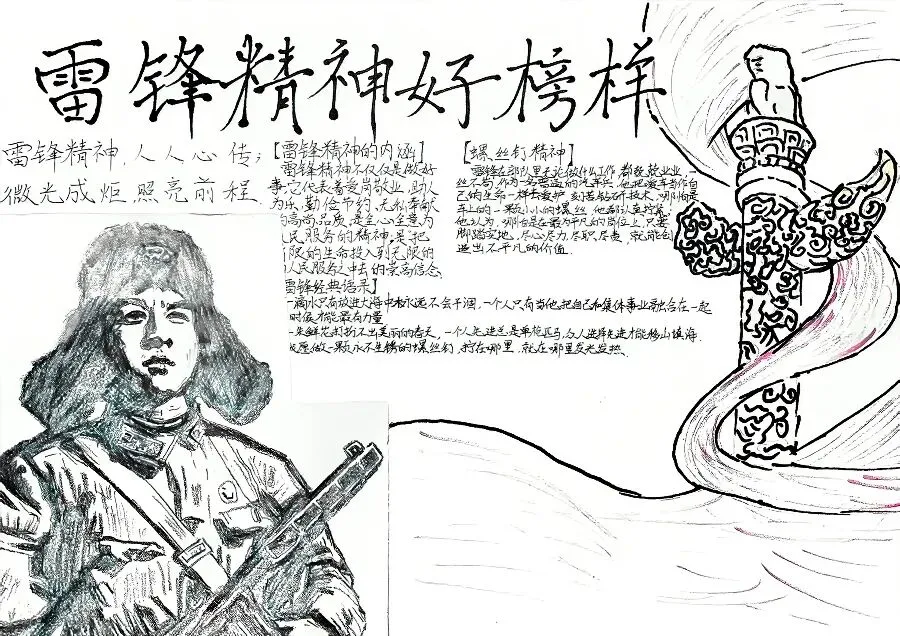 雷锋精神好榜样
雷锋精神，人人心传；
微光成炬，照亮前程
【雷锋精神的内涵】
雷锋精神不仅仅是做好
事，它代表着爱岗敬业、助人
为乐、勤俭节约、无私奉献
的高尚品质，是全心全意为
人民服务的精神，是把
有限的生命投入到无限的
为人民服务之中去的崇高信念
雷锋经典语录】
一滴水只有放进大海中才永远不会干涸，一个人只有当他把自己和集体事业融合在一起
时候才能最有力量
一朵鲜花打扮不出美丽的春天，一个人先进总是单枪匹马，众人先进才能移山填海
愿做一颗永不生锈的螺丝钉，拧在哪里，就在哪里发光发热
【螺丝钉精神】
雷锋在部队里无论做什么工作，都兢兢业业，一
丝不苟，作为一名普通的汽车兵，他把爱车当作自
己的生命一样去爱护，刻苦钻研技术，哪怕是
车上的一颗小小的螺丝，他都认真拧紧
他认为，哪怕是在最平凡的岗位上，只要
脚踏实地，尽心尽力，尽职尽责，就能创
造出不平凡的价值